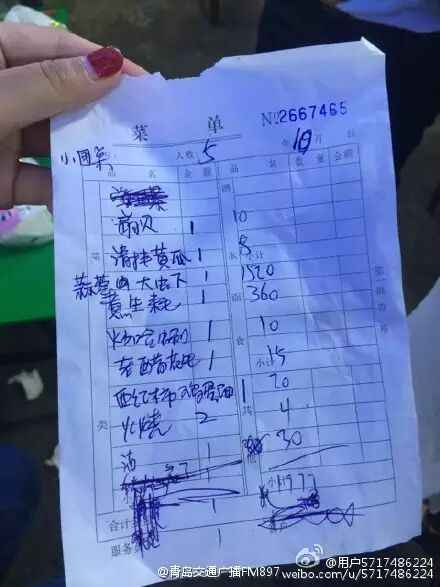 菜 单
№2667465
小圆桌
人数 5 年 10 月 日
品 名 金 额 品 名 数 量 金 额
扇贝 1 10
清拌黄瓜 1 8
蒜蓉大虾 1 1520
生蚝 1 360
炒蛤蜊 1 10
老醋 1 15
西红柿鸡蛋 1 20
火烧 2 4
油 1 30
菜 类
酒 水 小计
面 食 小计
其 他
小计 1977
第二联存根
合计
服务员
1
@青岛交通广播FM897
@用户5717486224
weibo.com/u/5717486224